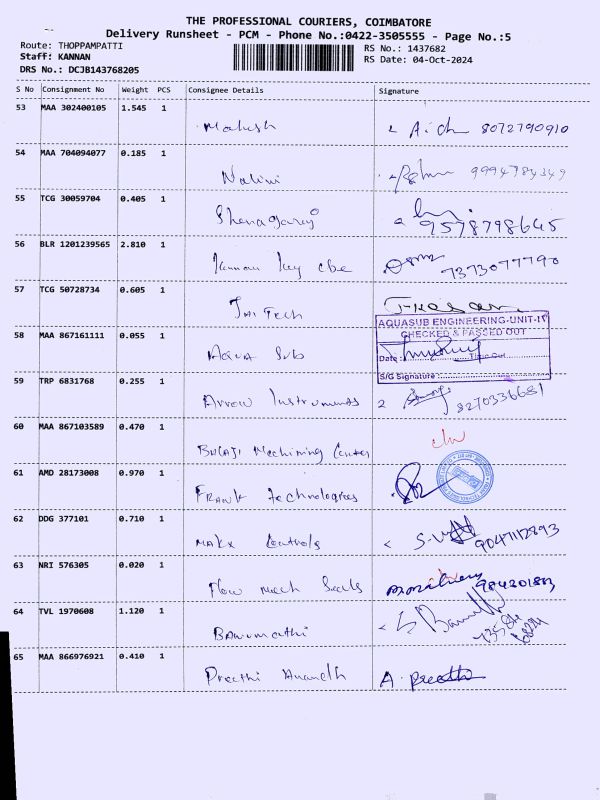 THE PROFESSIONAL COURIERS, COIMBATORE
Delivery Runsheet - PCM - Phone No.:0422-3505555 - Page No.:5
Route: THOPPAMPATTI
RS No.: 1437682
Staff: KANNAN
RS Date: 04-Oct-2024
DRS No.: DCJB143768205
S No Consignment No Weight PCS Consignee Details Signature
53 MAA 302400105 1.545 1
Mahesh 8072790910
54 MAA 704094077 0.185 1
Nalini 9994784349
55 TCG 30059704 0.405 1
9578798645
56 BLR 1201239565 2.810 1
Kannan cbe 7373077790
57 TCG 50728734 0.605 1
Jai Tech
AQUASUB ENGINEERING-UNIT-IV
CHECKED & PASSED OUT
58 MAA 867161111 0.055 1
Aqua Sub
Date: Time Out
S/G Signature:
59 TRP 6831768 0.255 1
Arrow Instruments 8270336681
60 MAA 867103589 0.470 1
Machining Center
61 AMD 28173008 0.970 1
Frank Technologies
62 DDG 377101 0.710 1
Makx Controls 9047112893
63 NRI 576305 0.020 1
Flow Mech Seals
64 TVL 1970608 1.120 1
Banumathi
65 MAA 866976921 0.410 1
Preethi Ananth A. Preetha